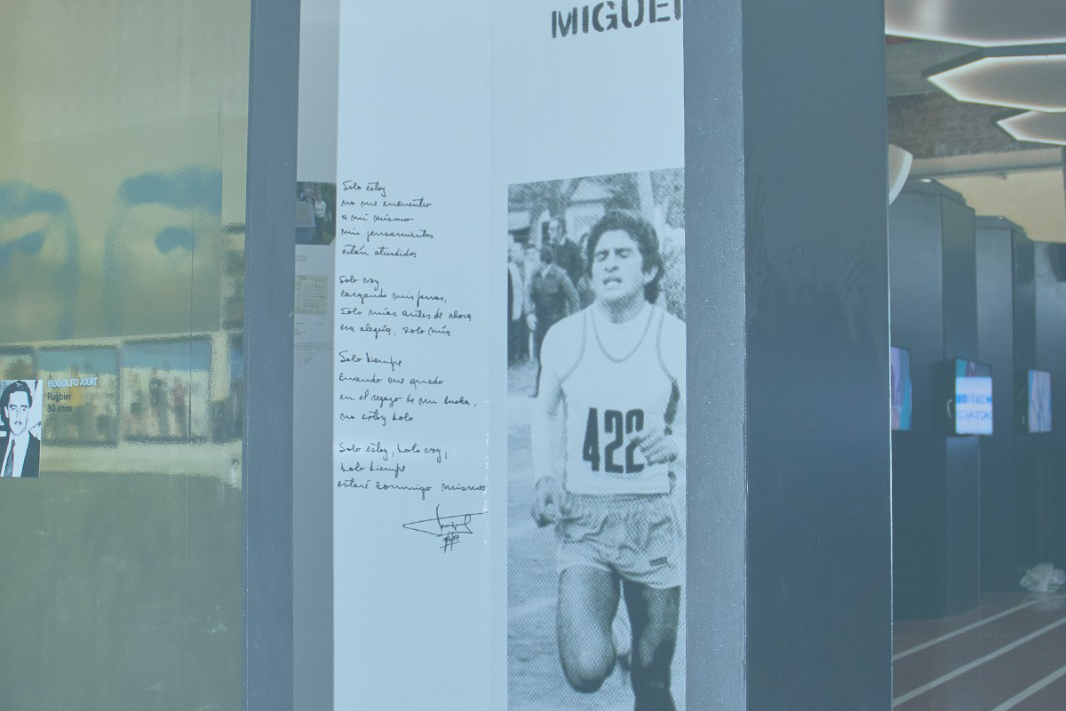 MIGUEL
Solo estoy
no me encuentro
a mi mismo
mis pensamientos
están aturdidos
Solo voy
cargando mis penas,
solo mías antes de ahora
era alegría, solo mía
Solo siempre
cuando me quedo
en el regazo de mi
no estoy solo
Solo estoy, solo voy,
solo siempre
estaré conmigo mismo
422
RODOLFO AXAT
Rugbier
30 años